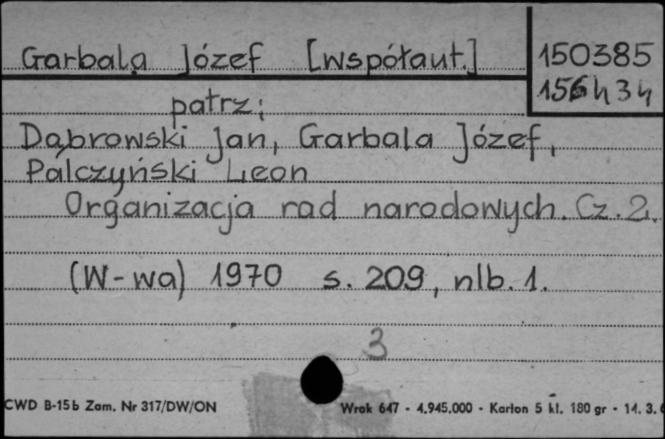 Garbala Józef [współaut.] 150385
156434
patrz:
Dąbrowski Jan, Garbala Józef,
Pálczyński Leon
Organizacja rad narodowych. Cz. 2.
(W-wa) 1970 s. 209, nlb. 1.
3
CWD B-15b Zam. Nr 317/DW/ON Wrok 647 - 4.945.000 - Karton 5 kl. 180 gr - 14. 3.